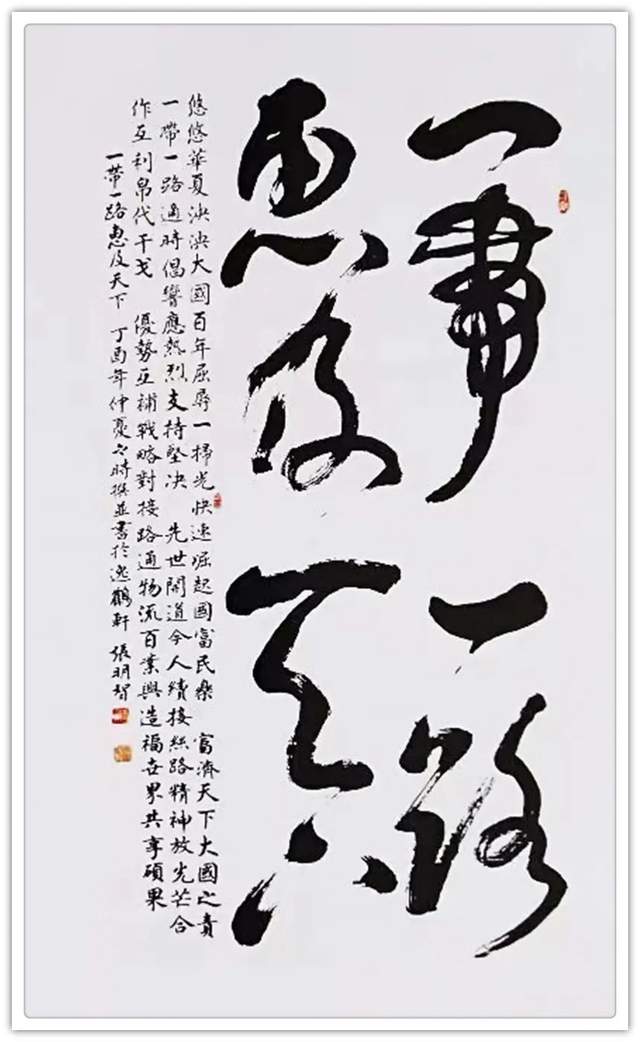 一带一路
惠及天下
悠悠華夏泱泱大國百年屈辱一掃光快速崛起國富民樂 富濟天下大國之責
一帶一路適時倡響應熱烈支持堅決 先世開道今人續接絲路精神放光芒合
作互利帛代干戈 優勢互補戰略對接路通物流百業興造福世界共享碩果
一帶一路惠及天下 丁酉年仲夏之時撰並書於逸鶴軒 張明智